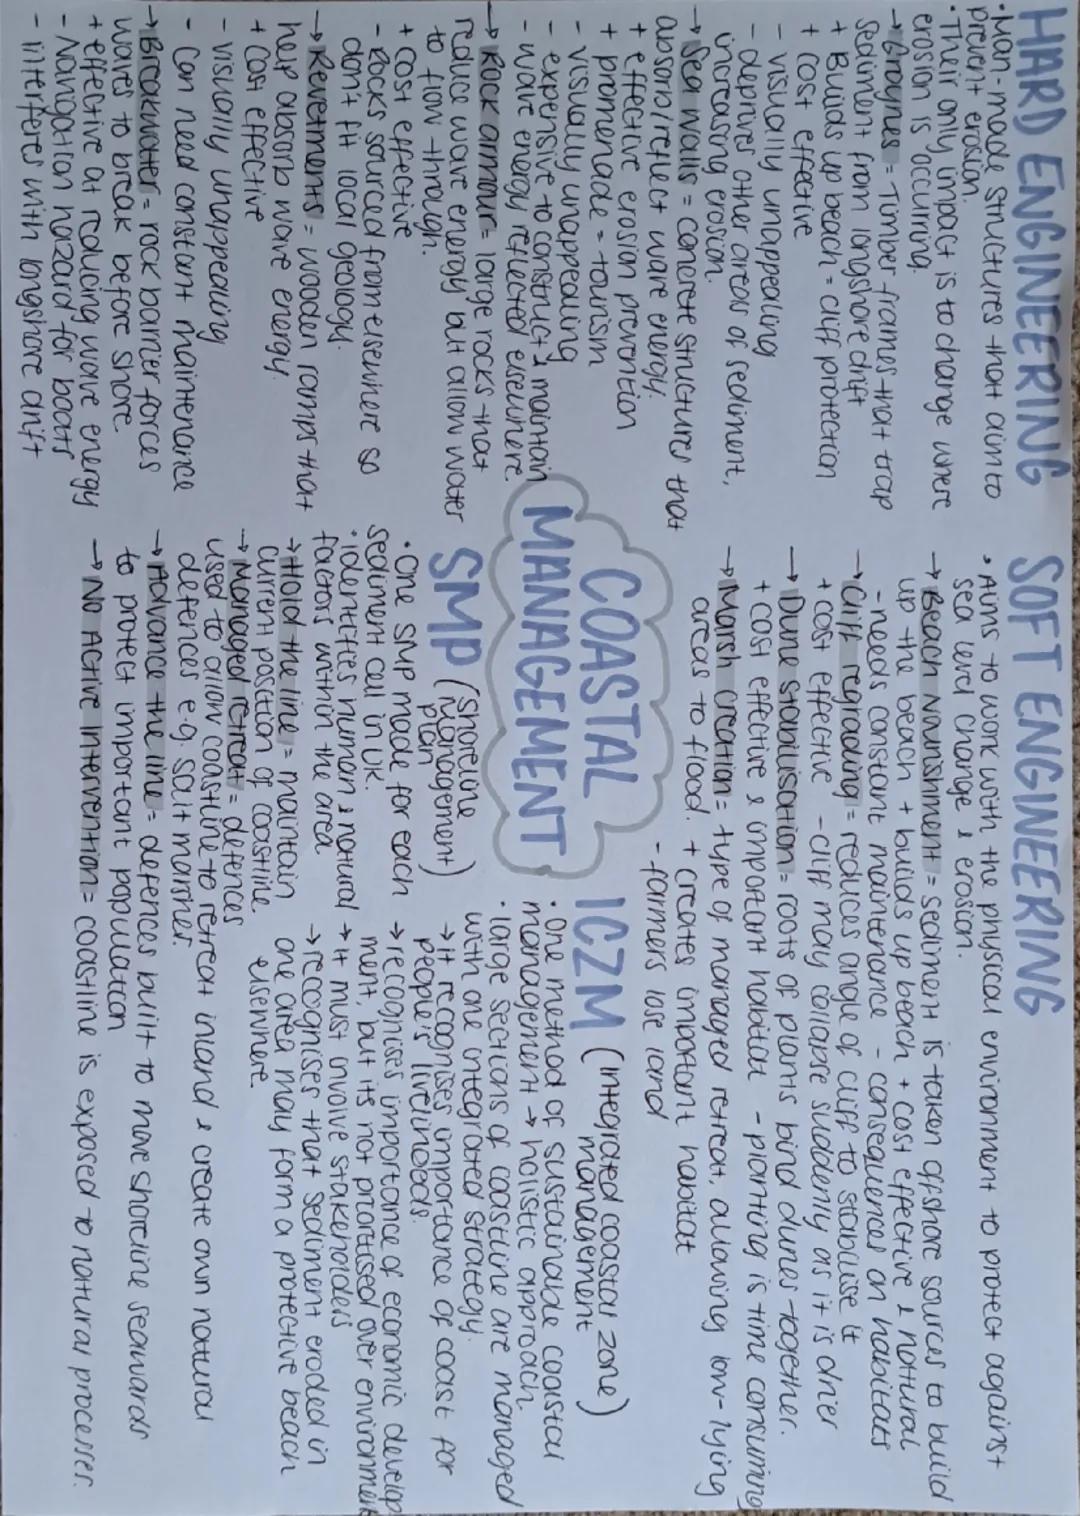 HARD ENGINEERING
• Man-made structures that aim to
prevent erosion.
• Their only impact is to change where
erosion is occurring.
→ Groynes = Timber frames that trap
sediment from longshore drift
+ Builds up beach = cliff protection
+ Cost effective
- visually unappealing
- deprives other areas of sediment,
increasing erosion.
→ Sea walls = concrete structures that
absorb/reflect wave energy.
+ effective erosion prevention
+ promenade = tourism
- visually unappealing
- expensive to construct & maintain
- wave energy reflected elsewhere.
→ Rock armour = large rocks that
reduce wave energy but allow water
to flow through.
+ cost effective
- Rocks sourced from elsewhere so
don't fit local geology.
→ Revetments = wooden ramps that
help absorb wave energy.
+ Cost effective
- visually unappealing
- Can need constant maintenance
→ Breakwater = rock barrier forces
waves to break before shore.
+ effective at reducing wave energy
- Navigation hazard for boats
- interferes with longshore drift
SOFT ENGINEERING
• Aims to work with the physical environment to protect against
sea level change & erosion.
→ Beach Nourishment = sediment is taken offshore sources to build
up the beach + builds up beach + cost effective & natural
- needs constant maintenance - consequences on habitats
→ Cliff regrading = reduces angle of cliff to stabilise it
+ cost effective - cliff may collapse suddenly as it is drier
→ Dune stabilisation = roots of plants bind dunes together.
+ cost effective & important habitat - planting is time consuming
→ Marsh creation = type of managed retreat, allowing low-lying
areas to flood. + creates important habitat
- farmers lose land
COASTAL
MANAGEMENT
SMP (Shoreline
Management
plan)
• One SMP made for each
sediment cell in UK.
• identifies human & natural
factors within the area
→ Hold the line = maintain
current position of coastline
→ Managed retreat = defences
used to allow coastline to retreat inland & create own natural
defences e.g. salt marshes.
→ Advance the line = defences built to move shoreline seawards
to protect important population
→ No Active Intervention = coastline is exposed to natural processes.
ICZM (integrated coastal zone
management)
• One method of sustainable coastal
management → holistic approach.
• large sections of coastline are managed
with one integrated strategy.
→ it recognises importance of coast for
people's livelihoods.
→ recognises importance of economic develop
ment, but its not prioritised over environment
→ It must involve stakeholders
→ recognises that sediment eroded in
one area may form a protective beach
elsewhere.